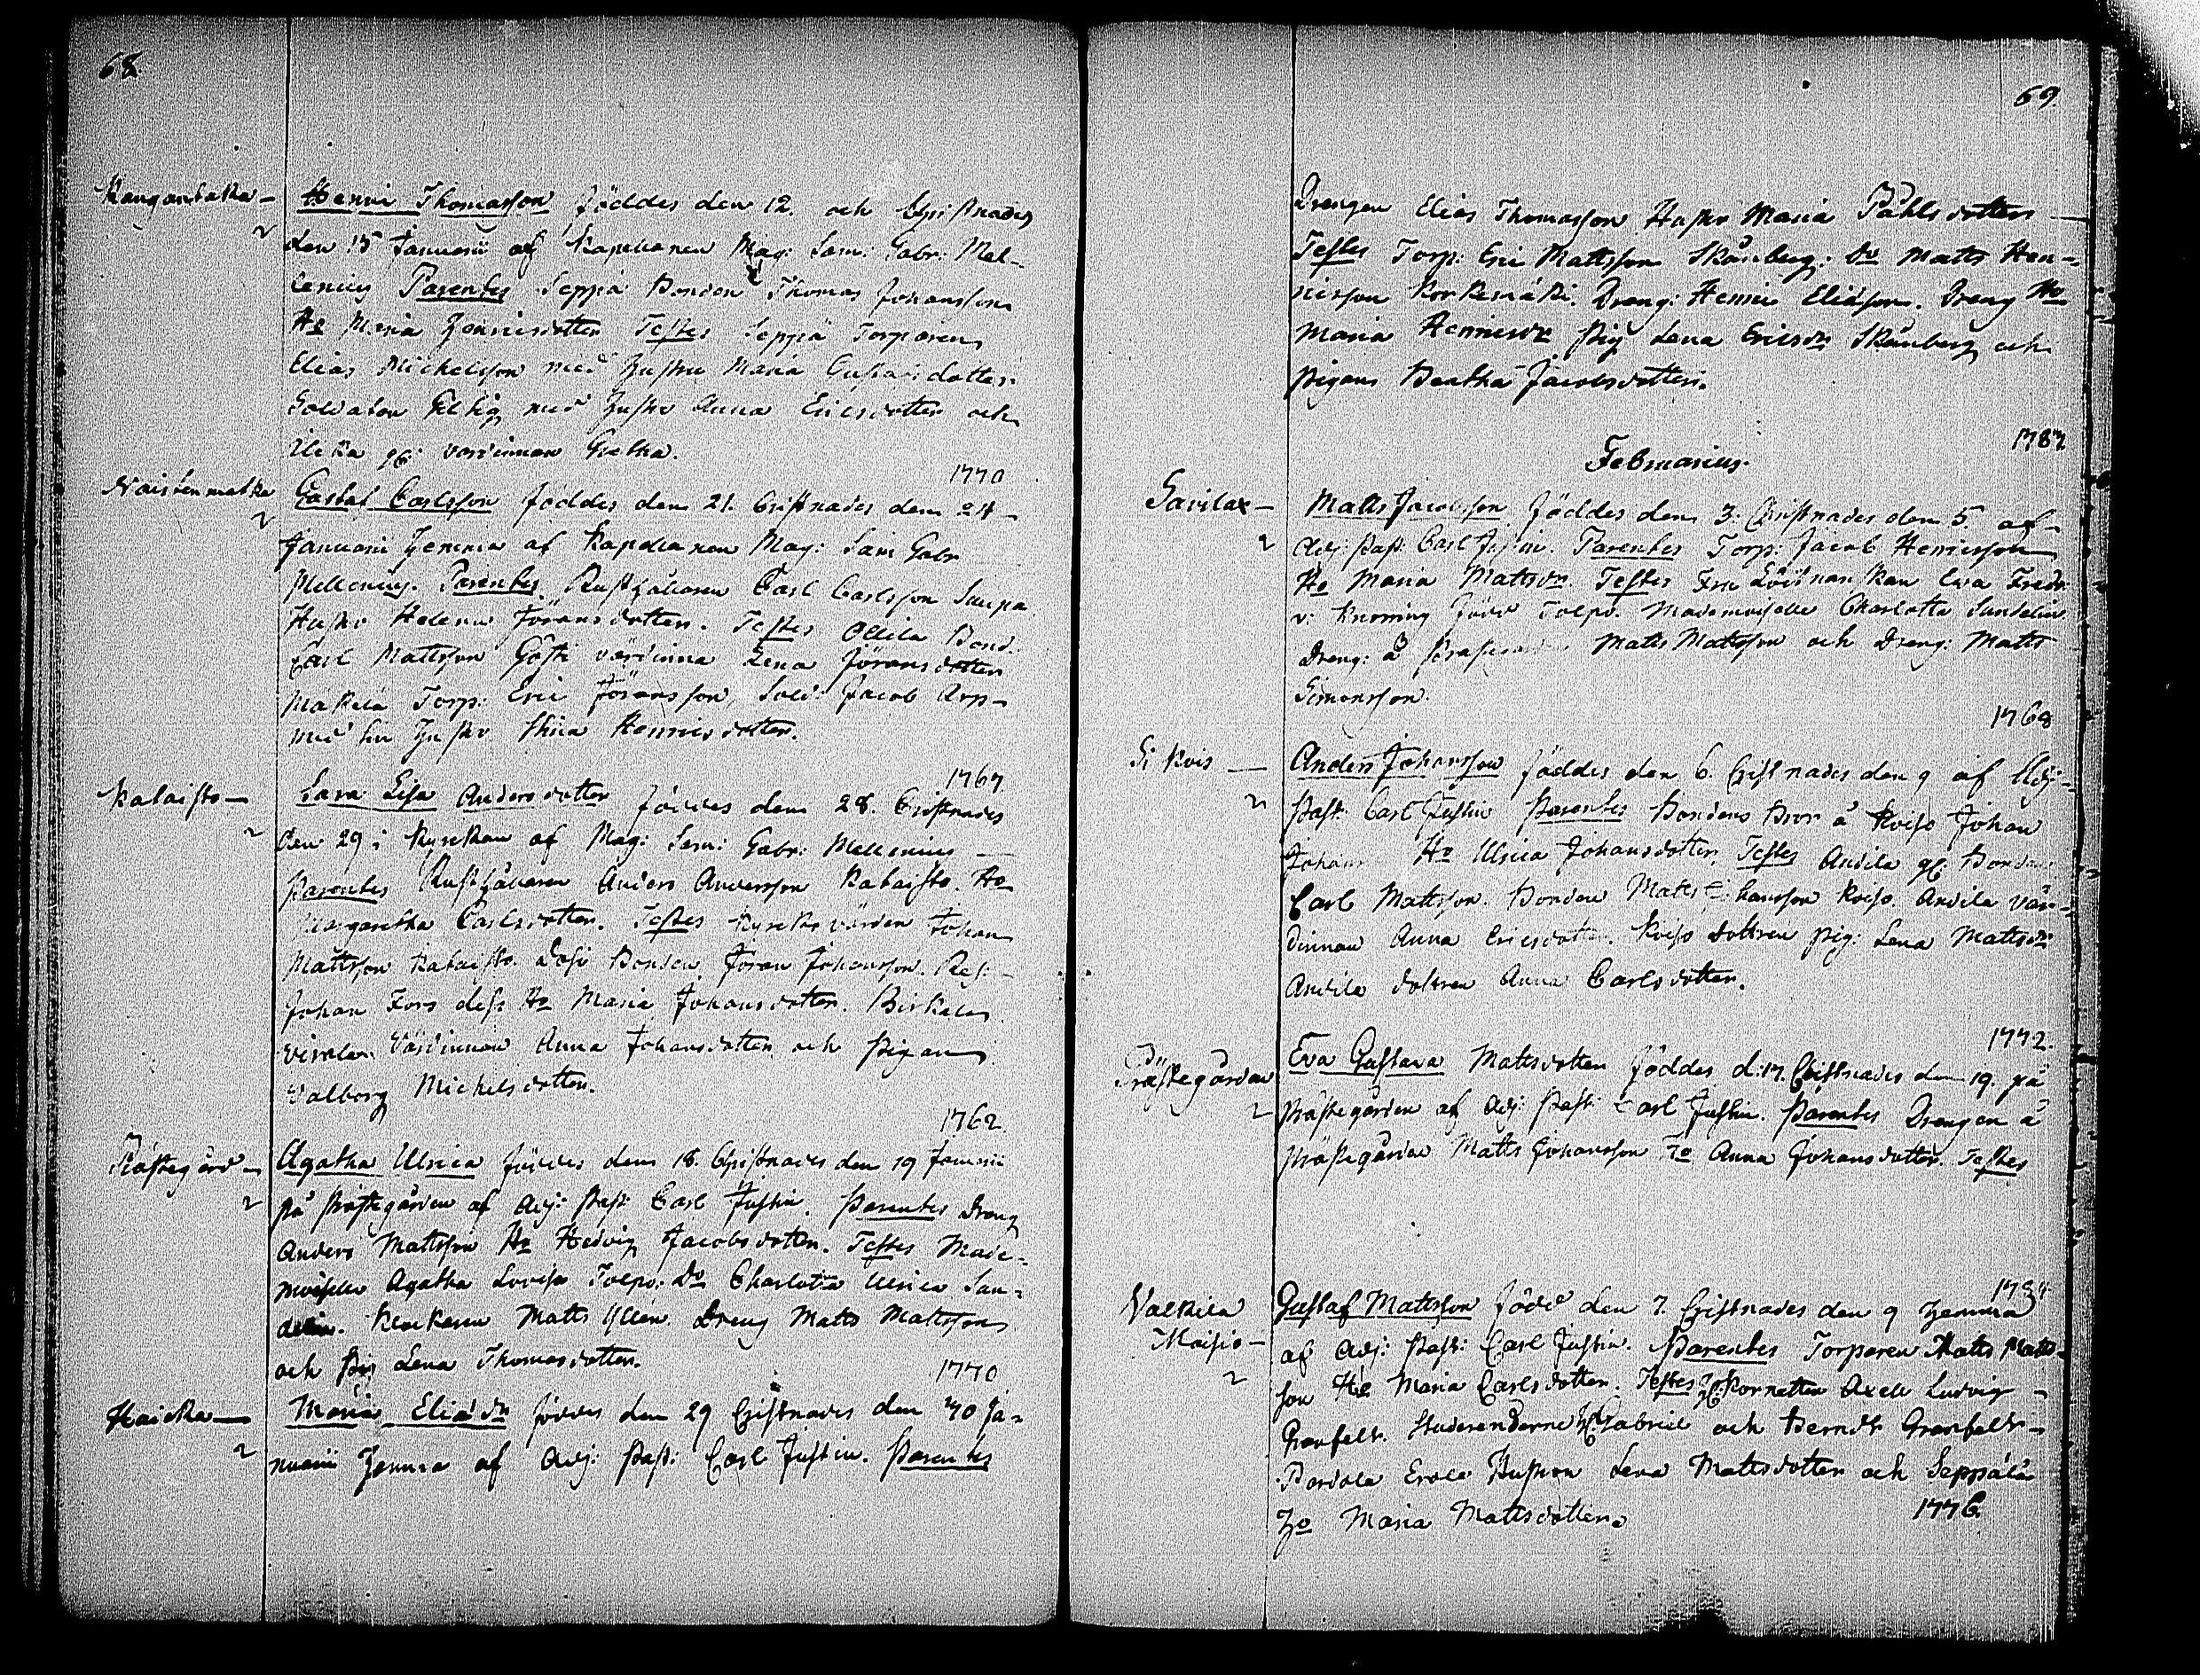 68.
Kangantaka –
Henric Thomasson föddes den 12. och Christnades
den 15 Januarii af Kapellanen Mag: Sam: Gabr: Mel-
lenius Parentes Seppä Bonden Thomas Johansson
Ho Maria Henricsdotter Testes Seppä Torparen
Elias Michelsson med hustru Maria Gustafsdotter.
Soldaten med Hustru Anna Ericsdotter och
värdinnan Gretha.
1770
Naistenmatka
Gustaf Carlsson föddes den 21. Cristnades den 24
Januarii hemma af Kapellanen Mag: Sam Gabr
Mellenius. Parentes Rusthållaren Carl Carlsson Saupa
Hustru Helena Jöransdotter. Testes Ollila Bond.
Carl Mattsson Gösti värdinna Lena Jöransdotter
Mäkilä Torp: Eric Jöransson, Sold: Jacob Arp
med sin Hustru Stina Henricsdotter.
1767
Kalaisto –
Sara Lisa Andersdotter föddes den 28. Cristnades
den 29 i Kyrckan af Mag: Sam: Gabr: Mellenius –
Parentes Rusthållaren Anders Andersson Kalaisto. Ho
Margaretha Carlsdotter. Testes Kyrkovärden Johan
Mattsson Kalaisto. Bonden Jöran Johansson. Res:
Johan Fors dess Ho Maria Johansdotter. Birkala
Värdinnan Anna Johansdotter och Pigan
Valborg Michelsdotter.
1762
Prästegård –
Agatha Ulrica föddes den 18. Christnades den 19 Januarii
på Prästegården af Adj: Past: Carl Justin. Parentes Dreng
Anders Mattsson Ho Hedvig Jacobsdotter. Testes Made-
moiselle Agatha Lovisa Tolpo: Do Charlotta Ulrica Sun-
delin. Klockaren Matts Dreng Matts Mattsson
och Pig Lena Thomasdotter.
1770
Haicka –
Maria Eliædr föddes den 29 Christnades den 30 Ja-
nuarii hemma af Adj: Past: Carl Justin. Parentes
69
Drengen Elias Thomasson Hustro Maria Påhlsdotter –
Testes Torp: Eric Mattsson Skånberg: Do Matts Hen-
ricsson Korkemäki. Dreng: Henric Eliasson. Dreng Ho
Maria Henricsdr Pig Lena Ericsdr Skånberg och
Pigan Beatha Jacobsdotter.
1787
Februarius.
Savilax –
Matts Jacobsson föddes den 3. Christnades den 5 af
Adj: Past: Carl Justin. Parentes Torp: Jacob Henricsson
Ho Maria Mattsdr. Testes Fru Löitnanskan Eva Fredr.
v. Knorring född Tolpo. Mademoiselle Charlotta Sundelin.
Dreng: å Matts Mattsson och Dreng: Matts
Simonsson.
1768
Sikvis –
Anders Johansson föddes den 6. Christnades den 9 af Adj:
Past: Carl Justin Parentes Bondens Bror å Koiso Johan
Johans Ho Ulrica Johansdotter. Testes Anvila gl: Bonden
Carl Mattsson. Bonden Matts Johansson Koiso. Anvila vär-
dinnan Anna Ericsdotter. Koiso dottren pig: Lena Mattsdr
Anvila dottren Anna Carlsdotter.
1772.
Prästegården
Eva Gustava Mattsdotter föddes d: 17. Christnades den 19. på
Prästegården af Adj: Past: Carl Justin. Parentes Drengen å
Prästegården Matts Johansson Ho Anna Johansdotter. Testes
Valkila
Maisio –
Gustaf Mattsson född den 7. Christnades den 9 hemma
af Adj: Past: Carl Justin. Parentes Torparen Matts Matts-
son Ho Maria Carlsdotter. Testes Hr Kornetten Axell Ludvig
Granfelt. Studerenderne Hr Gabriel och Berndt Granfelt –
Pardala Hustron Lena Mattsdotter och Seppälä
Ho Maria Mattsdotter.
1776